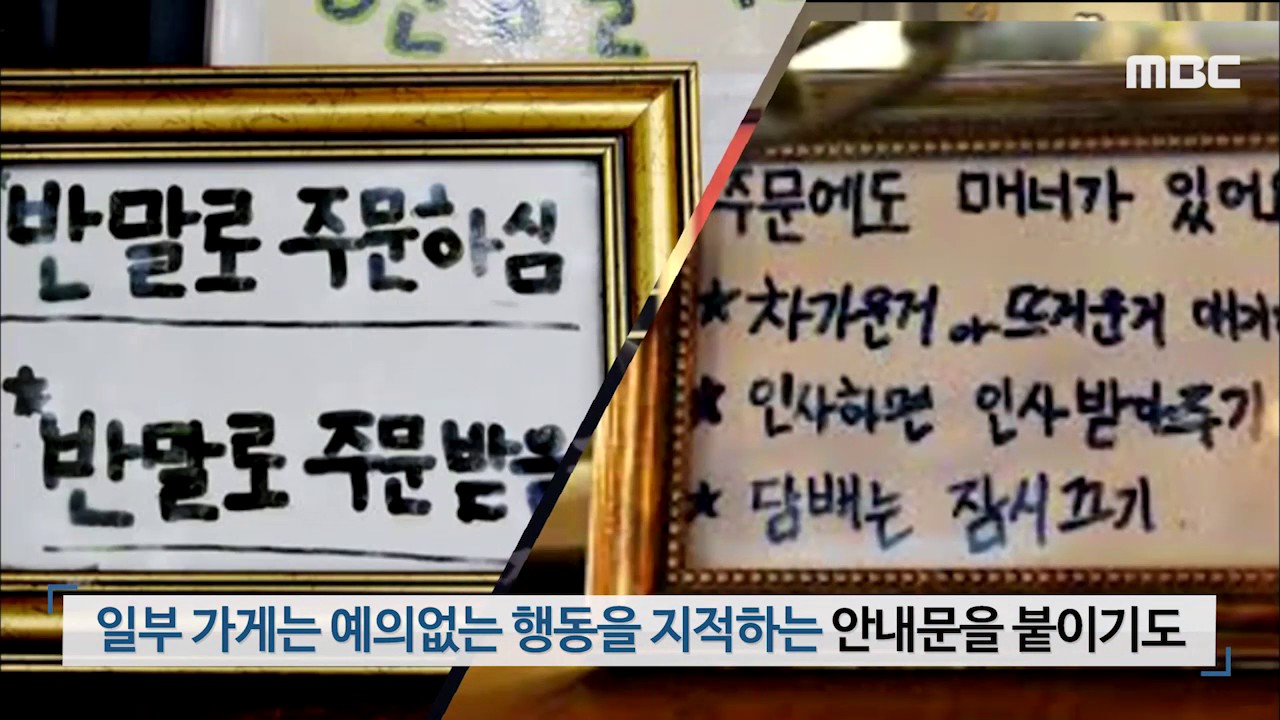 MBC
반말로 주문하심
*반말로 주문 받음
주문에도 매너가 있어요
★ 차가운거 아 뜨거운거
★ 인사하면 인사받아주기
★ 담배는 잠시끄기
일부 가게는 예의없는 행동을 지적하는 안내문을 붙이기도